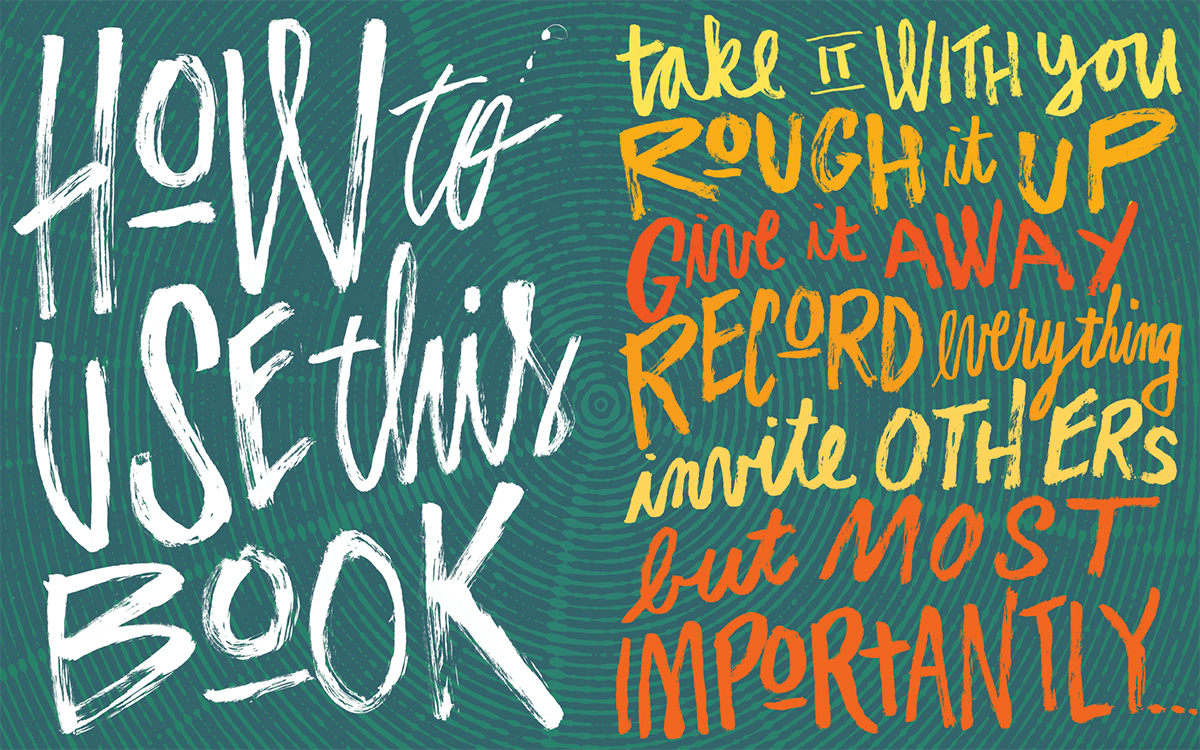 HOW to
USE this
BOOK
take IT WITH you
ROUGH it UP
Give it AWAY
RECORD everything
invite OTHERS
but MOST
IMPORtANTLY...